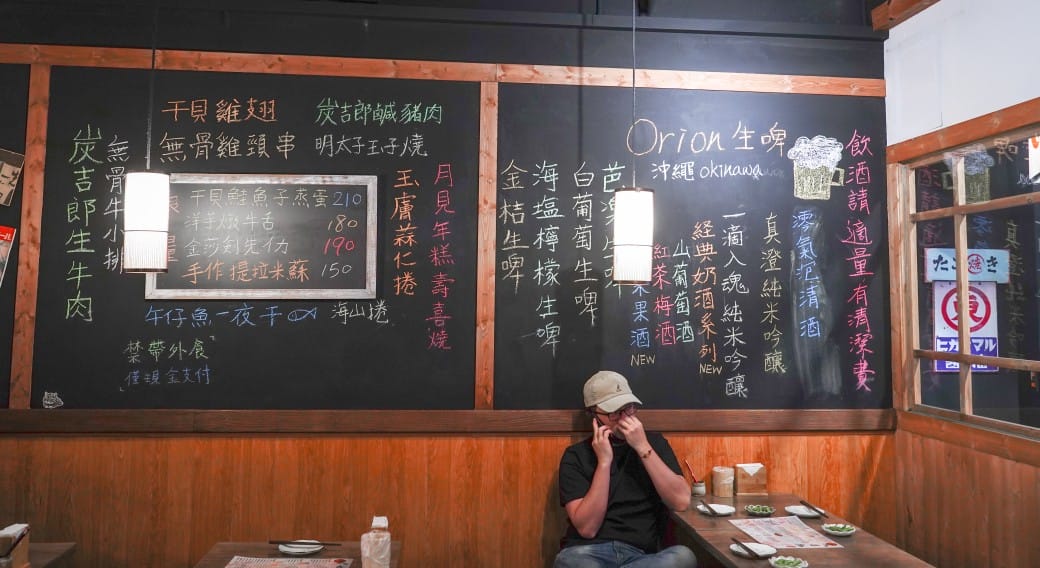 干貝雞翅
炭吉郎鹹豬肉
無骨雞頸串
明太子玉子燒
炭吉郎生牛肉
無骨牛小排
干貝鮭魚子蒸蛋 210
洋芋燉牛舌 180
190
手作提拉米蘇 150
玉膚蒜仁捲
月見年糕壽喜燒
午仔魚一夜干
海山捲
禁帶外食
僅現金支付
Orion生啤
沖繩 okinawa
金桔生啤
海塩檸檬生啤
白葡萄生啤
果酒
NEW
紅茶梅酒
山葡萄酒
經典奶酒系列
NEW
一滴入魂純米吟釀
真澄純米吟釀
零氣泡清酒
飲酒請適量有清潔費
たこ焼き
東
ヒガシマル